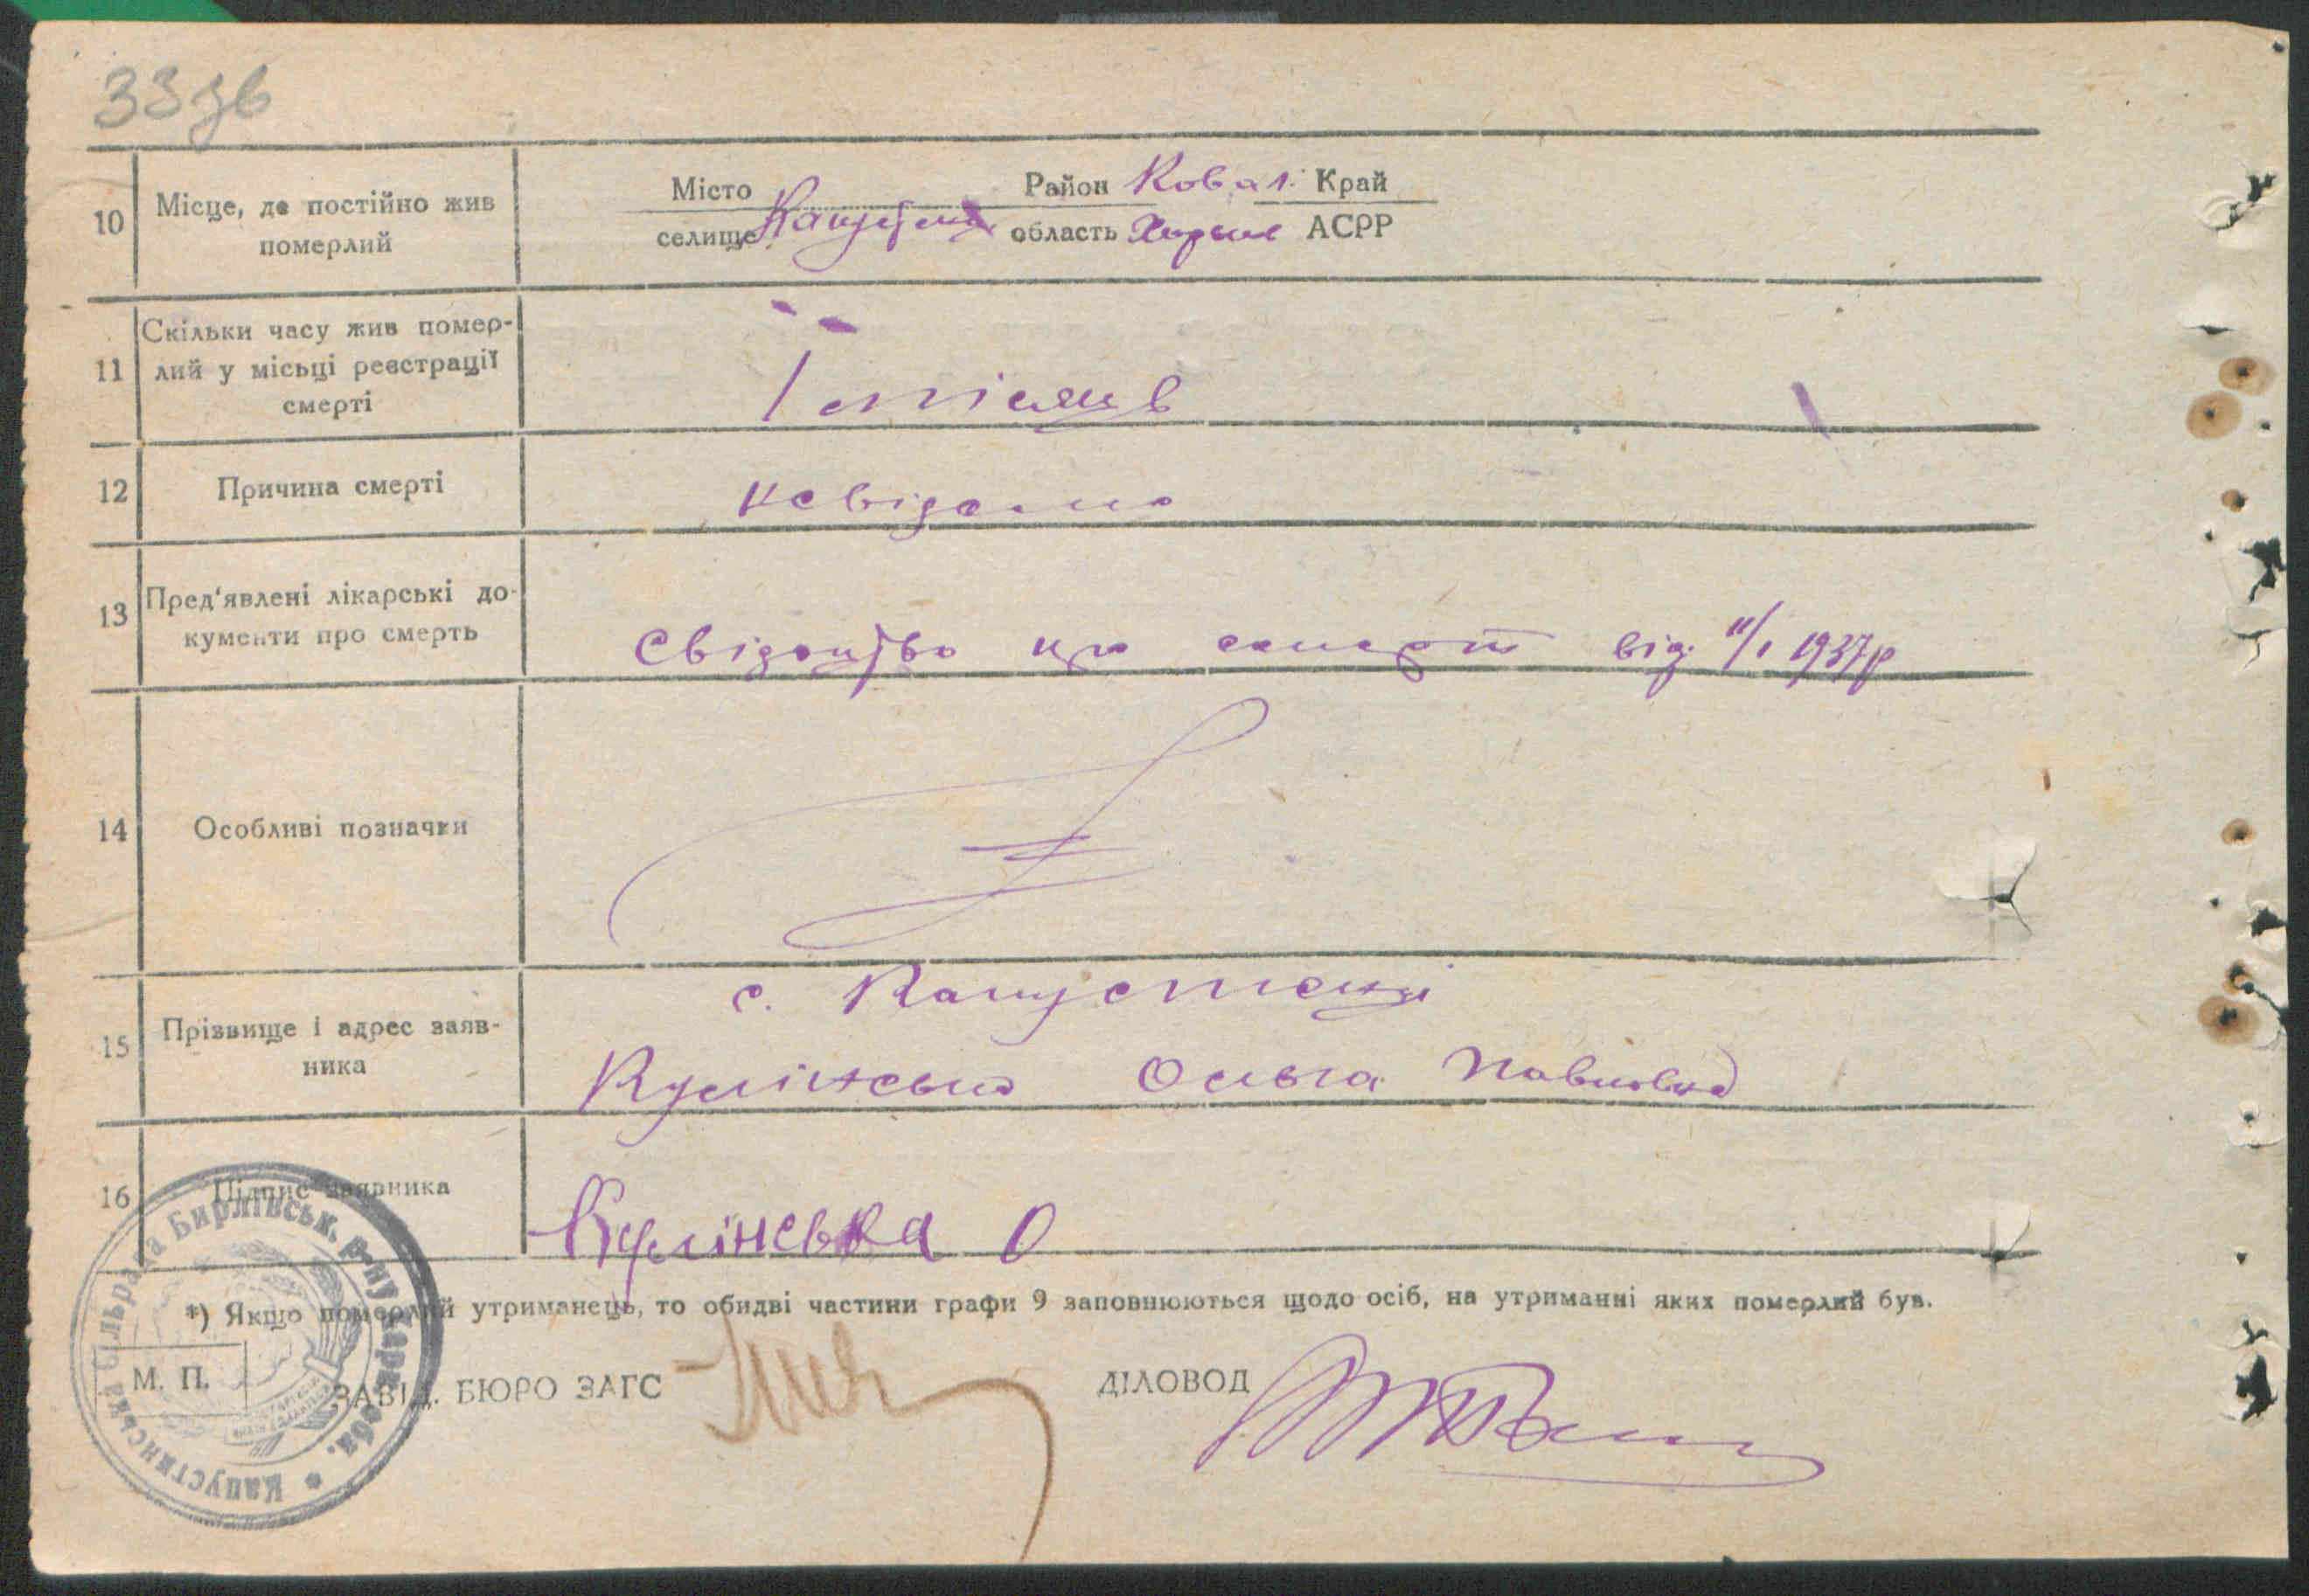 33 зв
10 Місце, де постійно жив померлий
Місто Район Ковал. Край
селище область Харьк АСРР
11 Скільки часу жив помер-
лий у місьці реєстрації
смерті
місяців
12 Причина смерті невідома
13 Пред'явлені лікарські до-
кументи про смерть
Свідоцтво про смерть від 11/І 1937р
14 Особливі позначки
с. Капустенці
15 Прізвище і адрес заяв-
ника
Кулінська Ольга Павловна
16 Підпис заявника
Кулінська О
*) Якщо померлий утриманець, то обидві частини графи 9 заповнюються щодо осіб, на утриманні яких померлий був.
М. П.
ЗАВІД. БЮРО ЗАГС
ДІЛОВОД
Капустинська сільрада Бирлівськ. р-ну Харк. обл.